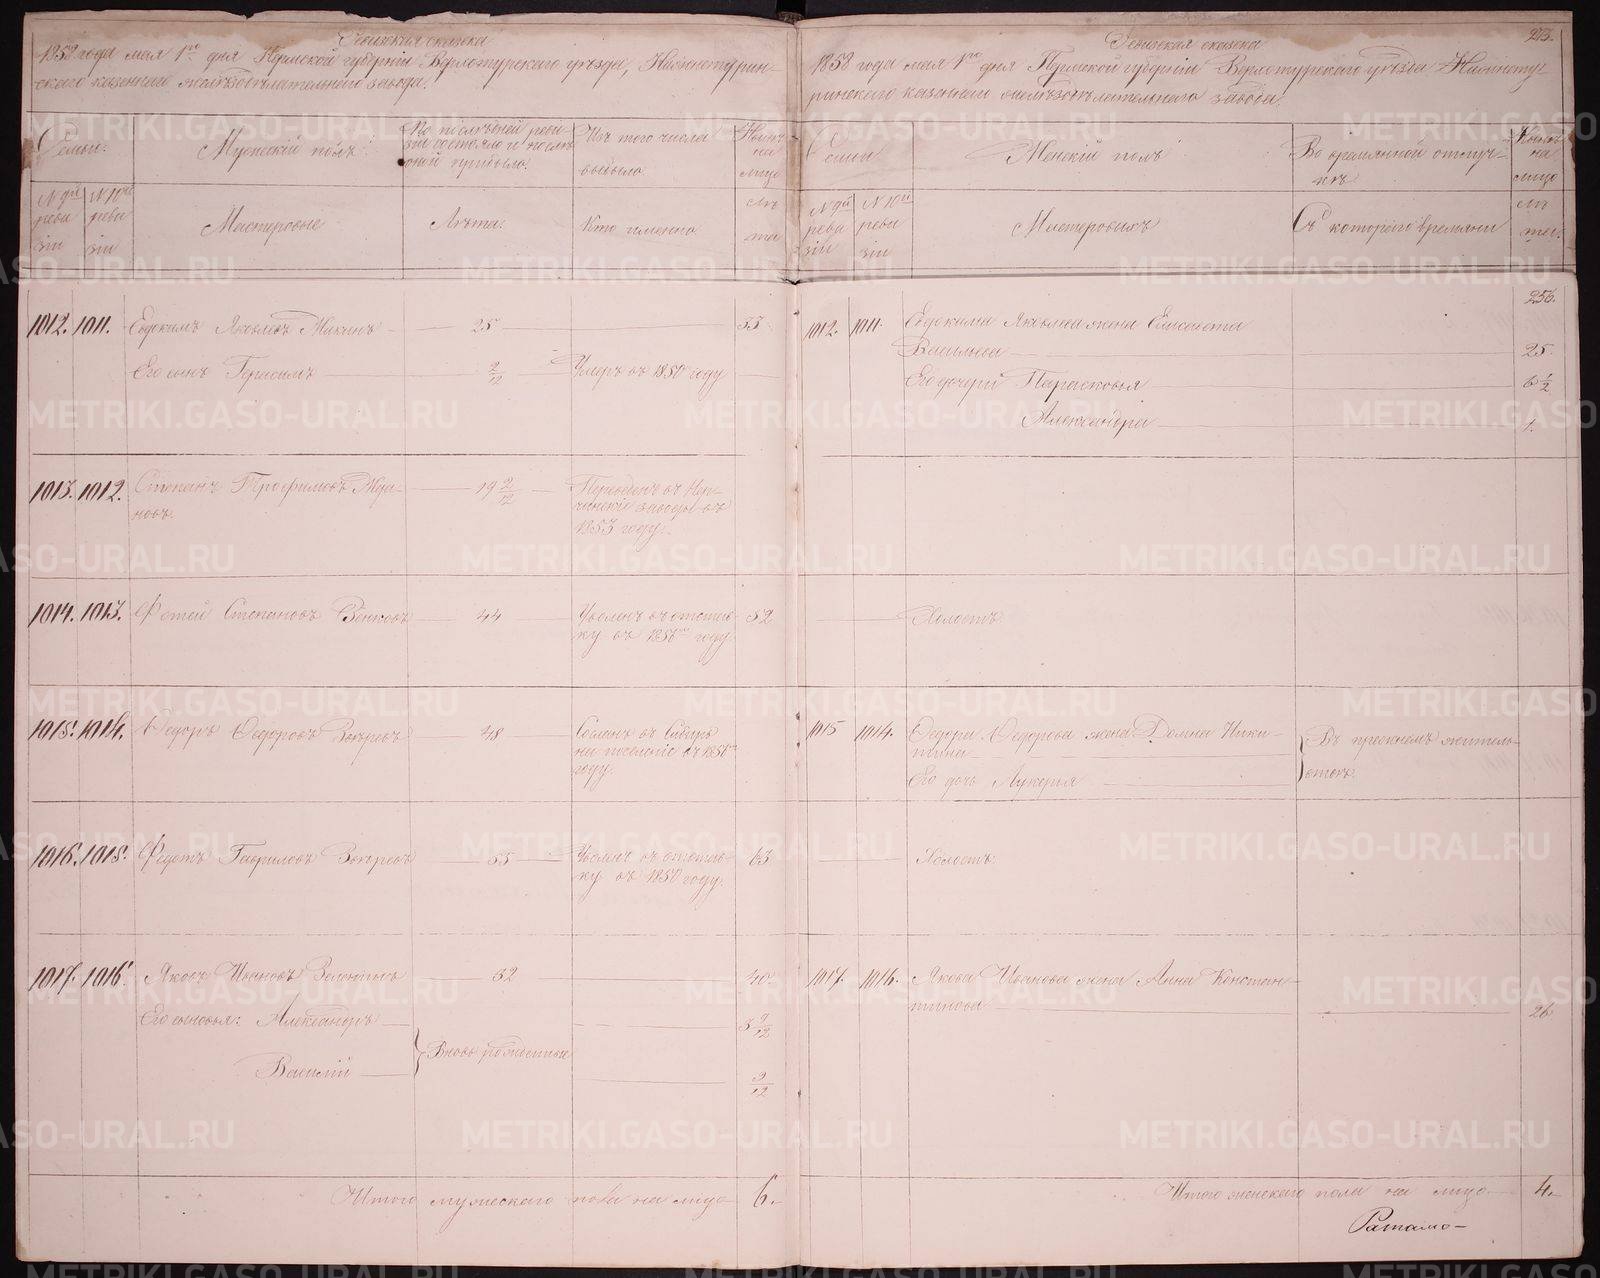 Ревизская сказка
1858 года мая 1го дня Пермской губернiи Верхотурскаго уѣзда, Нижнетурин-
скаго казеннаго желѣзодѣлательнаго завода.
Семьи.
Мужескiй полъ
По послѣдней реви-
зiи состояло и послѣ
оной прибыло.
Изъ того числа
выбыло.
Нынѣ
на
лицо
N 9й
реви
зiи
N 10й
реви
зiи
Мастеровые
Лѣта.
Кто именно
Лѣ
та
1012. 1011. Евдокимъ Яковлевъ 25 33
Его сынъ Герасимъ 2/12 Умеръ въ 1850 году
1013. 1012. Степанъ Трофимовъ 19 2/12 Переведенъ въ Нер-
новъ. чинскiе заводы въ
1853 году.
1014. 1013. Фотей Степановъ 44 Уволенъ въ отстав- 52
ку въ 1856мъ году
1015. 1014. Ѳедоръ Ѳедоровъ 48 Сосланъ въ Сибирь
на поселенiе въ 1856мъ
году.
1016. 1015. Федотъ Гавриловъ 55 Уволенъ въ отстав- 63
ку въ 1850 году.
1017. 1016. Яковъ Ивановъ 32 40.
Его сыновья: Александръ 3 9/12
Вновь рожденные
Василiй 9/12
Итого мужескаго пола на лицо 6.
273.
Ревизская сказка
1858 года мая 1го дня Пермской губернiи Верхотурскаго уѣзда Нижнету-
ринскаго казеннаго желѣзодѣлательнаго завода.
Семьи
Женскiй полъ
Во времянной отлуч-
кѣ
Нынѣ
на
лицо
N 9й
реви
зiи
N 10й
реви
зiи
Мастеровыхъ
Съ котораго времяни
Лѣ
та.
256.
1012. 1011. Евдокима Яковлева жена Елисавета
Васильева 25.
Его дочери Парасковья 6 1/2
Александра 1.
Холостъ.
1015 1014. Ѳедора Ѳедорова жена Домна Ники-
тина
Въ прежнемъ житель-
ствѣ.
Его дочь Лукерья
Холостъ.
1017. 1016. Якова Иванова жена Анна Констан-
тинова 26
Итого женскаго пола на лицо 4.